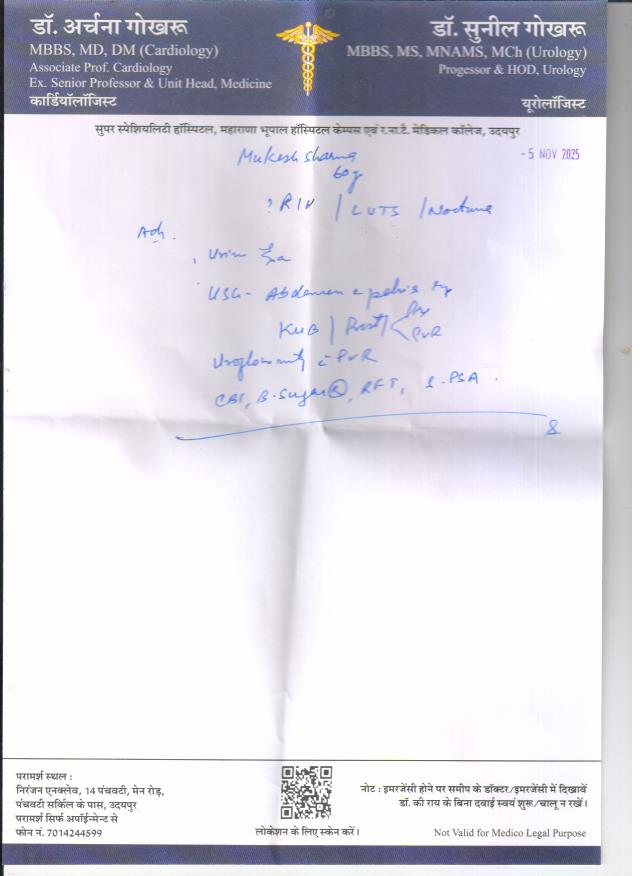 डॉ. अर्चना गोखरू
MBBS, MD, DM (Cardiology)
Associate Prof. Cardiology
Ex. Senior Professor & Unit Head, Medicine
कार्डियॉलॉजिस्ट
डॉ. सुनील गोखरू
MBBS, MS, MNAMS, MCh (Urology)
Progessor & HOD, Urology
यूरोलॉजिस्ट
सुपर स्पेशियलिटी हॉस्पिटल, महाराणा भूपाल हॉस्पिटल केम्पस एवं र.ना.टै. मेडिकल कॉलेज, उदयपुर
-5 NOV 2025
Mukesh Sharma
60y
/ LUTS / Nocturia
Adv.
Urine
USG - Abdomen c pelvis
KUB / Prost
PVR
Uroflowmetry c PVR
CBC, B. Sugar (R), RFT, S. PSA.
परामर्श स्थल :
निरंजन एनक्लेव, 14 पंचवटी, मेन रोड़,
पंचवटी सर्किल के पास, उदयपुर
परामर्श सिर्फ अपॉईन्मेन्ट से
फोन नं. 7014244599
लोकेशन के लिए स्केन करें।
नोट : इमरजेंसी होने पर समीप के डॉक्टर/इमरजेंसी में दिखावें
डॉ. की राय के बिना दवाई स्वयं शुरू/चालू न रखें।
Not Valid for Medico Legal Purpose